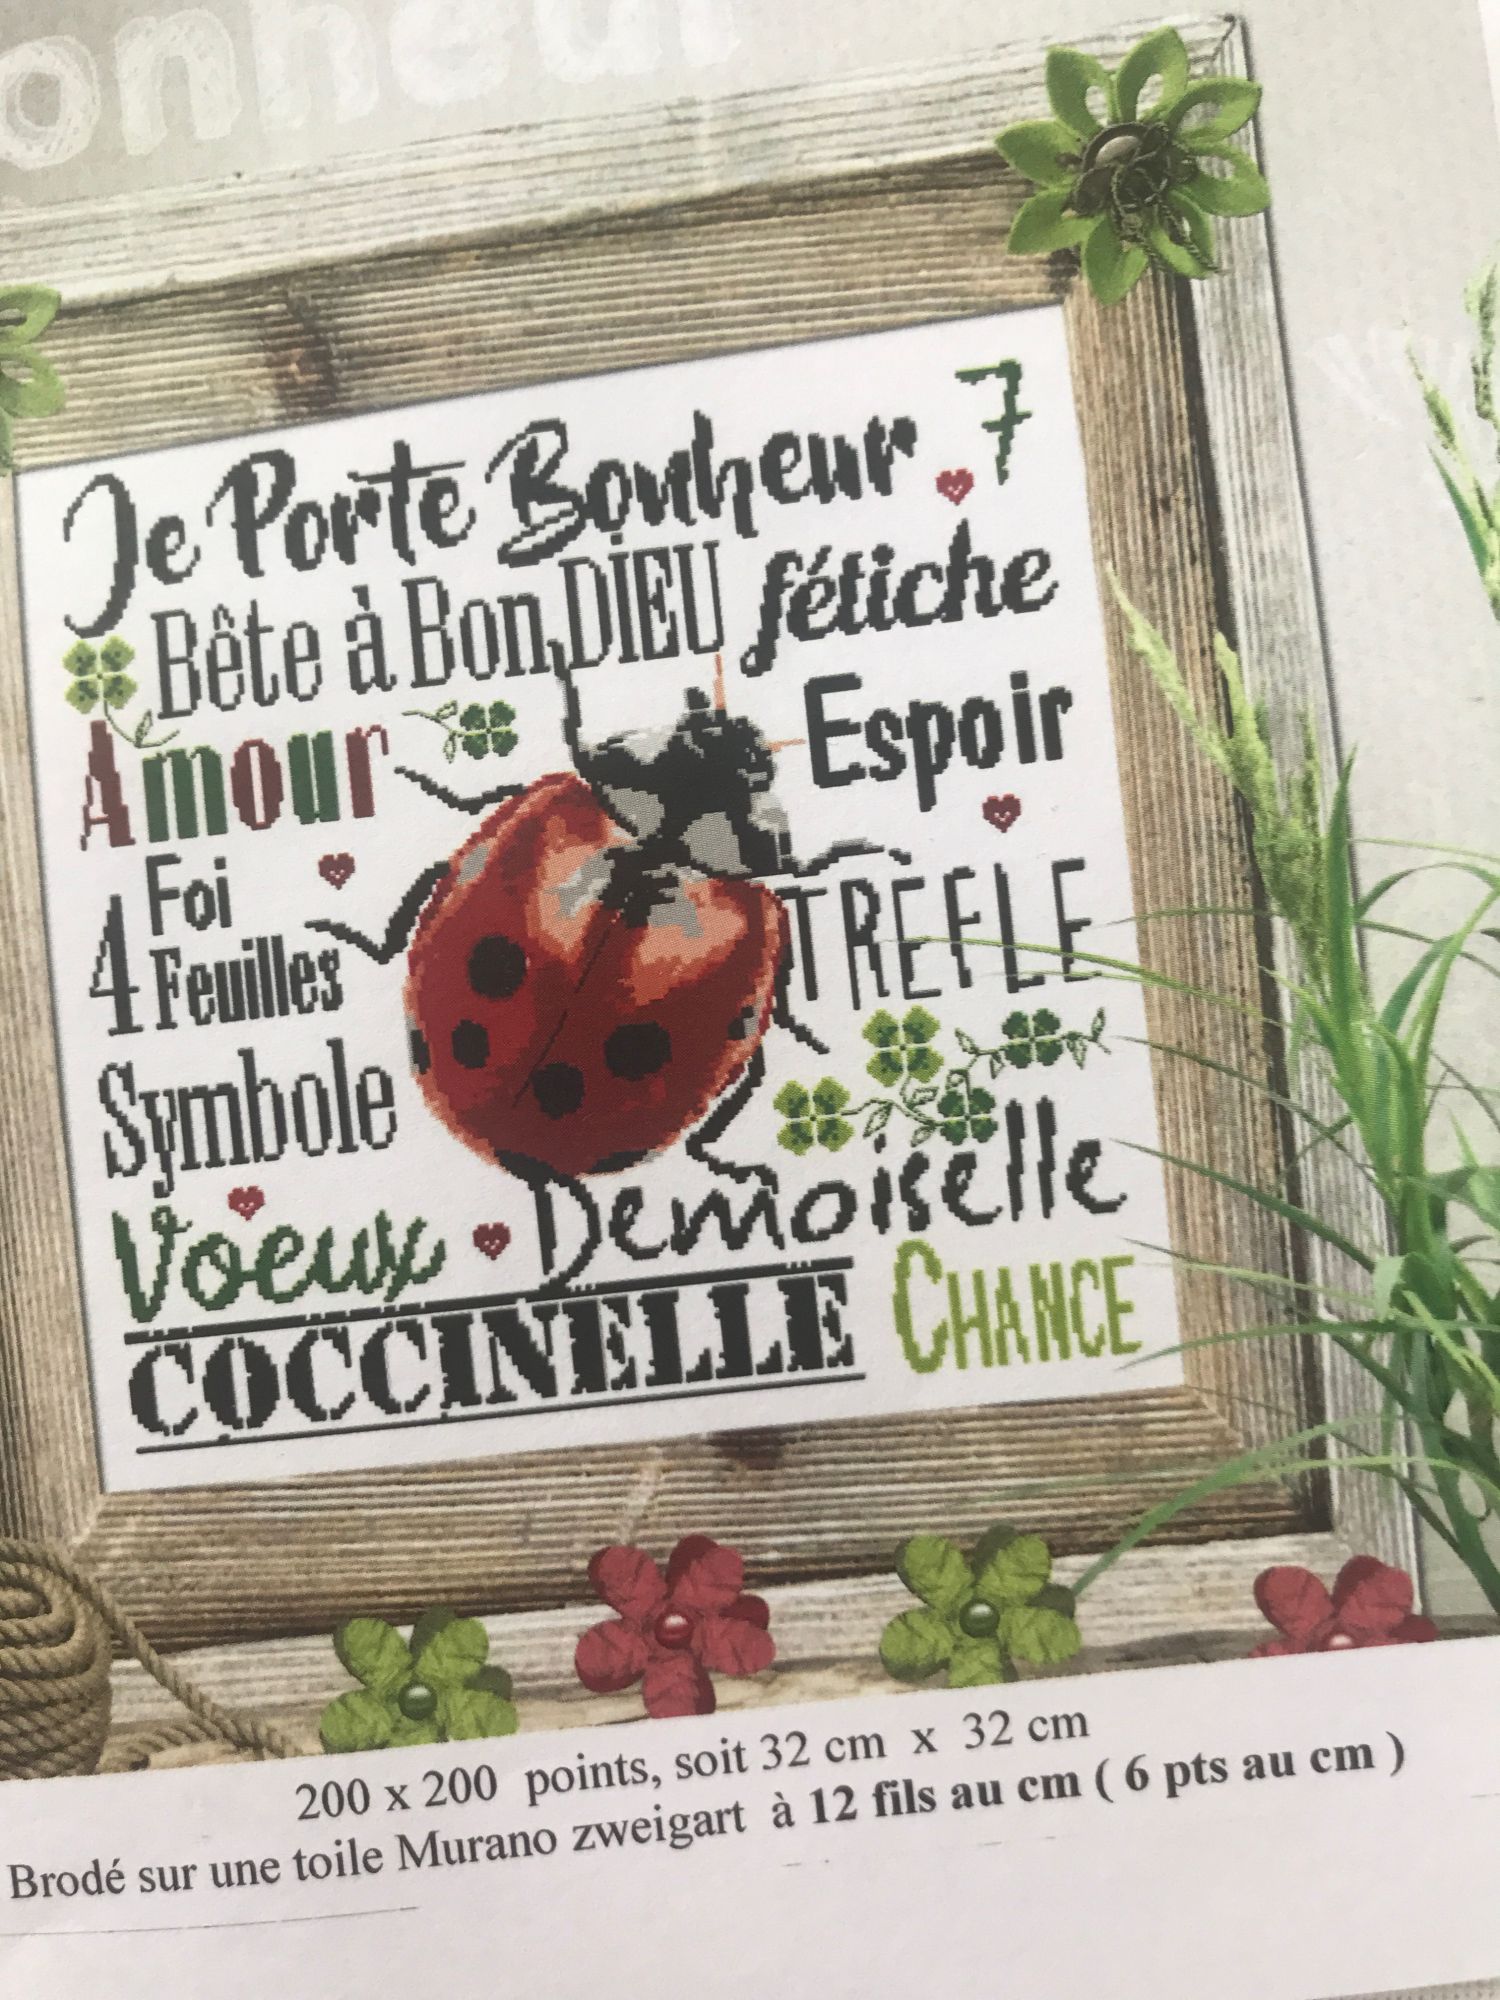 onheur
Je Porte Bonheur 7
Bête à Bon DIEU fétiche
Amour
Espoir
Foi
4 Feuilles
TREFLE
Symbole
Demoiselle
Voeux
COCCINELLE
CHANCE
200 x 200 points, soit 32 cm x 32 cm
Brodé sur une toile Murano zweigart à 12 fils au cm ( 6 pts au cm )